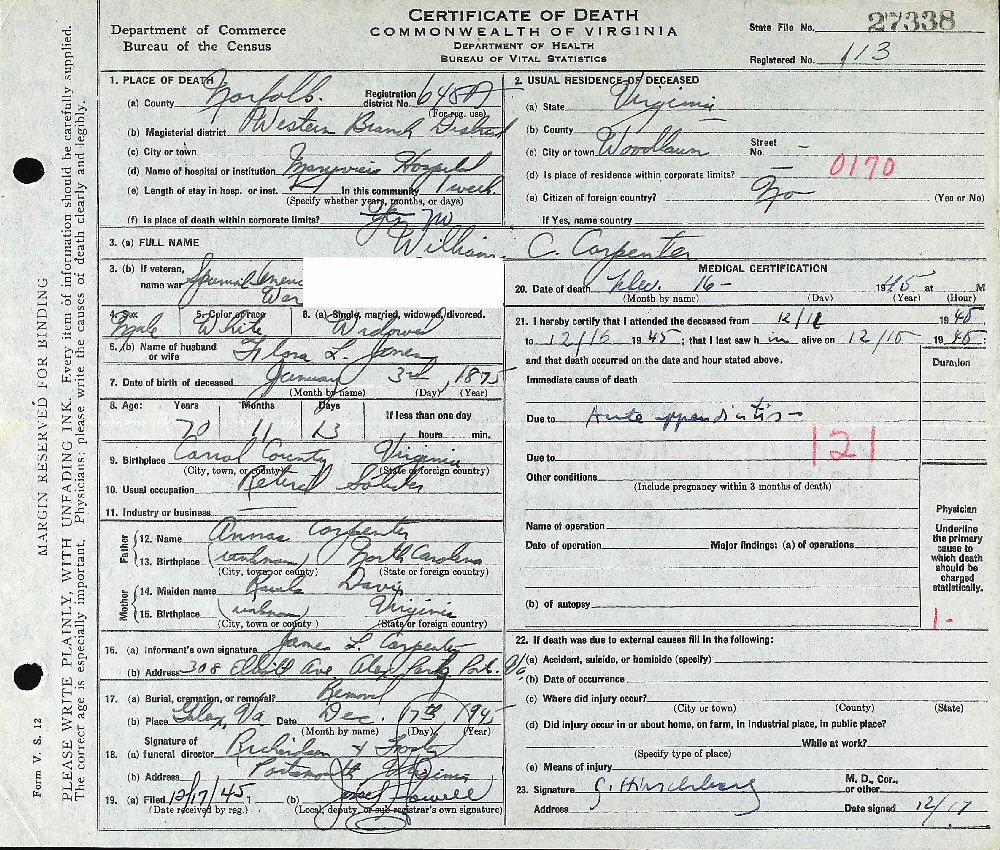 CERTIFICATE OF DEATH
COMMONWEALTH OF VIRGINIA
DEPARTMENT OF HEALTH
BUREAU OF VITAL STATISTICS
Department of Commerce
Bureau of the Census
State File No. 27338
Registered No. 113
1. PLACE OF DEATH
(a) County Norfolk. Registration district No. 645A
(For reg. use)
(b) Magisterial district Western Branch District
(c) City or town
(d) Name of hospital or institution Maryview Hospital
(e) Length of stay in hosp. or inst. In this community 1 week
(Specify whether years, months, or days)
(f) Is place of death within corporate limits? Yes no
2. USUAL RESIDENCE OF DECEASED
(a) State Virginia
(b) County
(c) City or town Woodlawn Street No. —
(d) Is place of residence within corporate limits? 0170
(e) Citizen of foreign country? No (Yes or No)
If Yes, name country
3. (a) FULL NAME William C. Carpenter
3. (b) If veteran, name war Spanish Amer War
4. Sex Male 5. Color or race White 6. (a) Single, married, widowed, divorced. Widowed
6. (b) Name of husband or wife Flora L. Jones
7. Date of birth of deceased January 3rd 1875
(Month by name) (Day) (Year)
8. Age: Years Months Days If less than one day
70 11 13 hours min.
9. Birthplace Carrol County Virginia
(City, town, or county) (State or foreign country)
10. Usual occupation Retired Soldier
11. Industry or business
Father
12. Name Carpenter
13. Birthplace (unknown) North Carolina
(City, town or county) (State or foreign country)
Mother
14. Maiden name Davis
15. Birthplace (unknown) Virginia
(City, town or county) (State or foreign country)
16. (a) Informant's own signature James L. Carpenter
(b) Address 308 Ave. Alex. Park, Port. Va
17. (a) Burial, cremation, or removal? Removal
(b) Place Galax, Va Date Dec. 17th 1945
(Month by name) (Day) (Year)
18. Signature of
(a) funeral director Richardson &
(b) Address Portsmouth Virginia
19. (a) Filed 12/17/45 (b) Howell
(Date received by reg.) (Local, deputy, or sub-registrar's own signature)
MEDICAL CERTIFICATION
20. Date of death Dec. 16 - 1945 at M
(Month by name) (Day) (Year) (Hour)
21. I hereby certify that I attended the deceased from 12/12 1945
to 12/16 1945; that I last saw h im alive on 12/16 1945;
and that death occurred on the date and hour stated above.
Duration
Immediate cause of death
Due to Acute appendicitis -
Due to 121
Other conditions
(Include pregnancy within 3 months of death)
Name of operation
Date of operation Major findings: (a) of operations
(b) of autopsy
Physician
Underline the primary cause to which death should be charged statistically.
1-
22. If death was due to external causes fill in the following:
(a) Accident, suicide, or homicide (specify)
(b) Date of occurrence
(c) Where did injury occur?
(City or town) (County) (State)
(d) Did injury occur in or about home, on farm, in industrial place, in public place?
While at work?
(Specify type of place)
(e) Means of injury
23. Signature S. Hirschberg M. D., Cor., or other
Address Date signed 12/17
Form V. S. 12
MARGIN RESERVED FOR BINDING
PLEASE WRITE PLAINLY, WITH UNFADING INK. Every item of information should be carefully supplied.
The correct age is especially important. Physicians: please write the causes of death clearly and legibly.